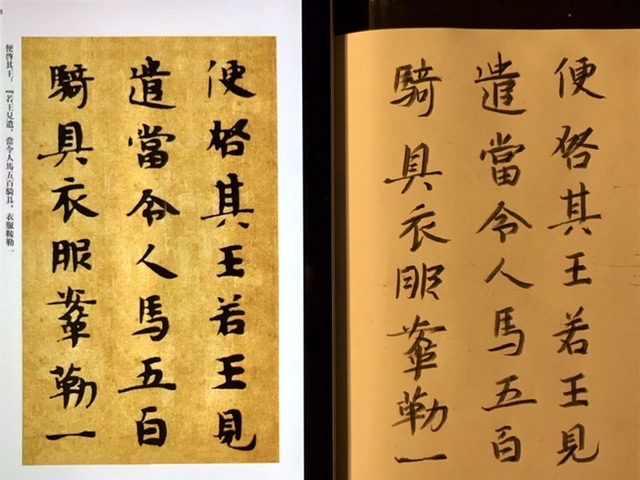 便啓其王若王見
遣當令人馬五百
騎具衣服鞌勒一
便啓其王：『若王見遣，當令人馬五百騎具，衣服鞍勒一
便啓其王若王見
遣當令人馬五百
騎具衣服鞌勒一